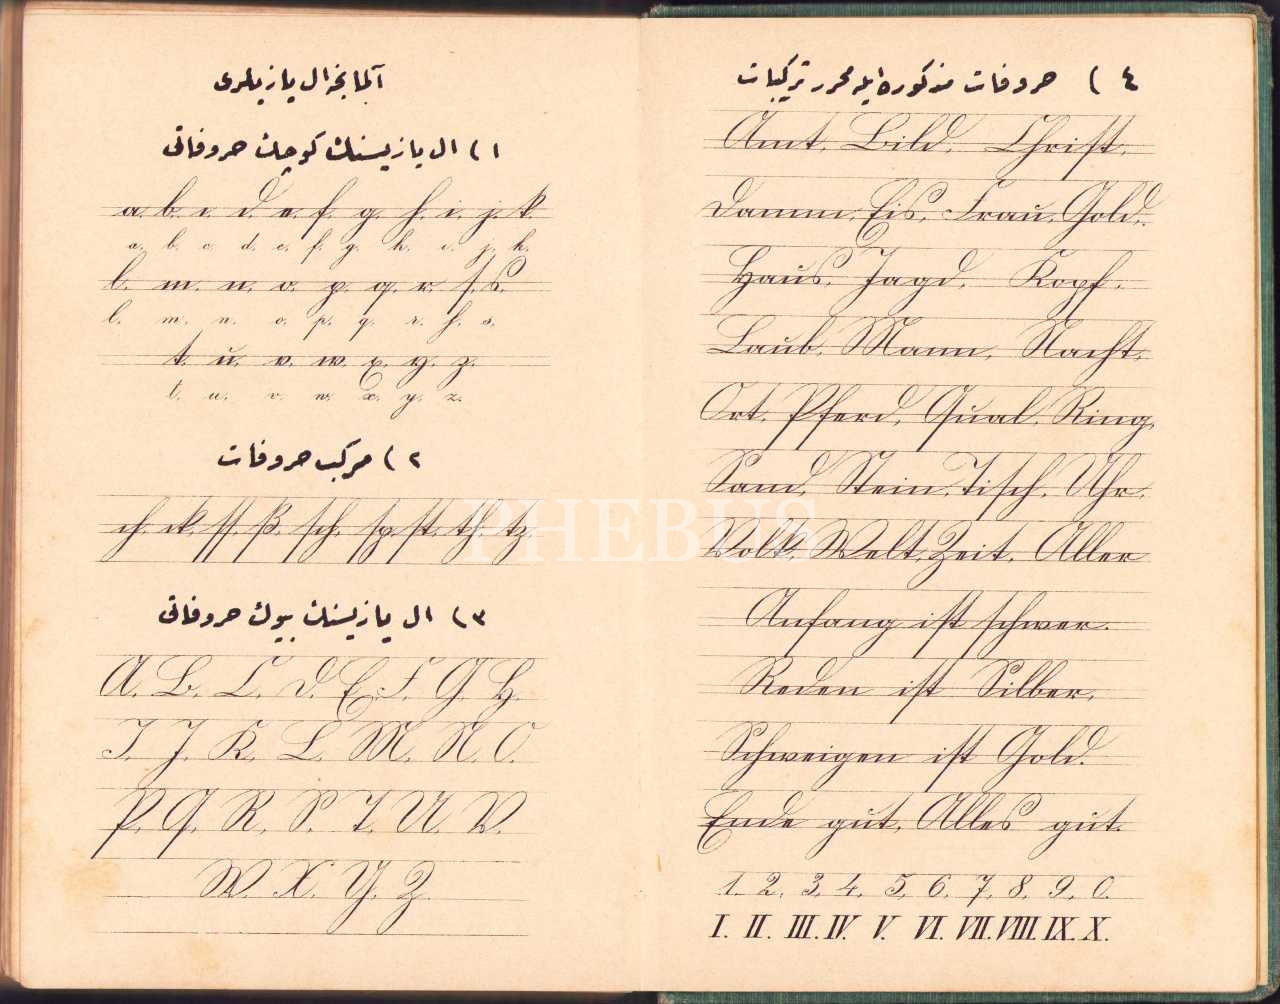 آلمانجه ال یازیلری
١) ال یازیسنك كوچك حروفاتی
a. b. c. d. e. f. g. h. i. j. k.
a. b. c. d. e. f. g. h. i. j. k.
l. m. n. o. p. q. r. ſ. s.
l. m. n. o. p. q. r. ſ. s.
t. u. v. w. x. y. z.
t. u. v. w. x. y. z.
٢) مركب حروفات
ch. ck. ſſ. ß. ſch. ſp. ſt. th. tz.
٣) ال یازیسنك بیوك حروفاتی
A. B. C. D. E. F. G. H.
I. J. K. L. M. N. O.
P. Q. R. S. T. U. V.
W. X. Y. Z.
٤) حروفات مذكوره ایله محرر تركیبات
Amt. Bild. Chriſt.
Damm. Eis. Frau. Gold.
Haus. Jagd. Kopf.
Laub. Mann. Nacht.
Ort. Pferd. Qual. Ring.
Sand. Stein. Tiſch. Uhr.
Volk. Welt. Zeit. Aller
Anfang iſt ſchwer.
Reden iſt Silber,
Schweigen iſt Gold.
Ende gut, Alles gut.
1. 2. 3. 4. 5. 6. 7. 8. 9. 0.
I. II. III. IV. V. VI. VII. VIII. IX. X.
PHEBUS